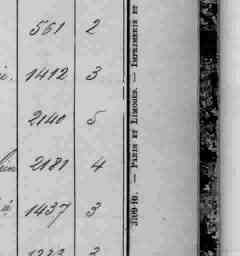 561 2
1412 3
2140 5
2181 4
1437 3
3
3109-10. — PARIS ET LIMOGES. — IMPRIMERIE ET